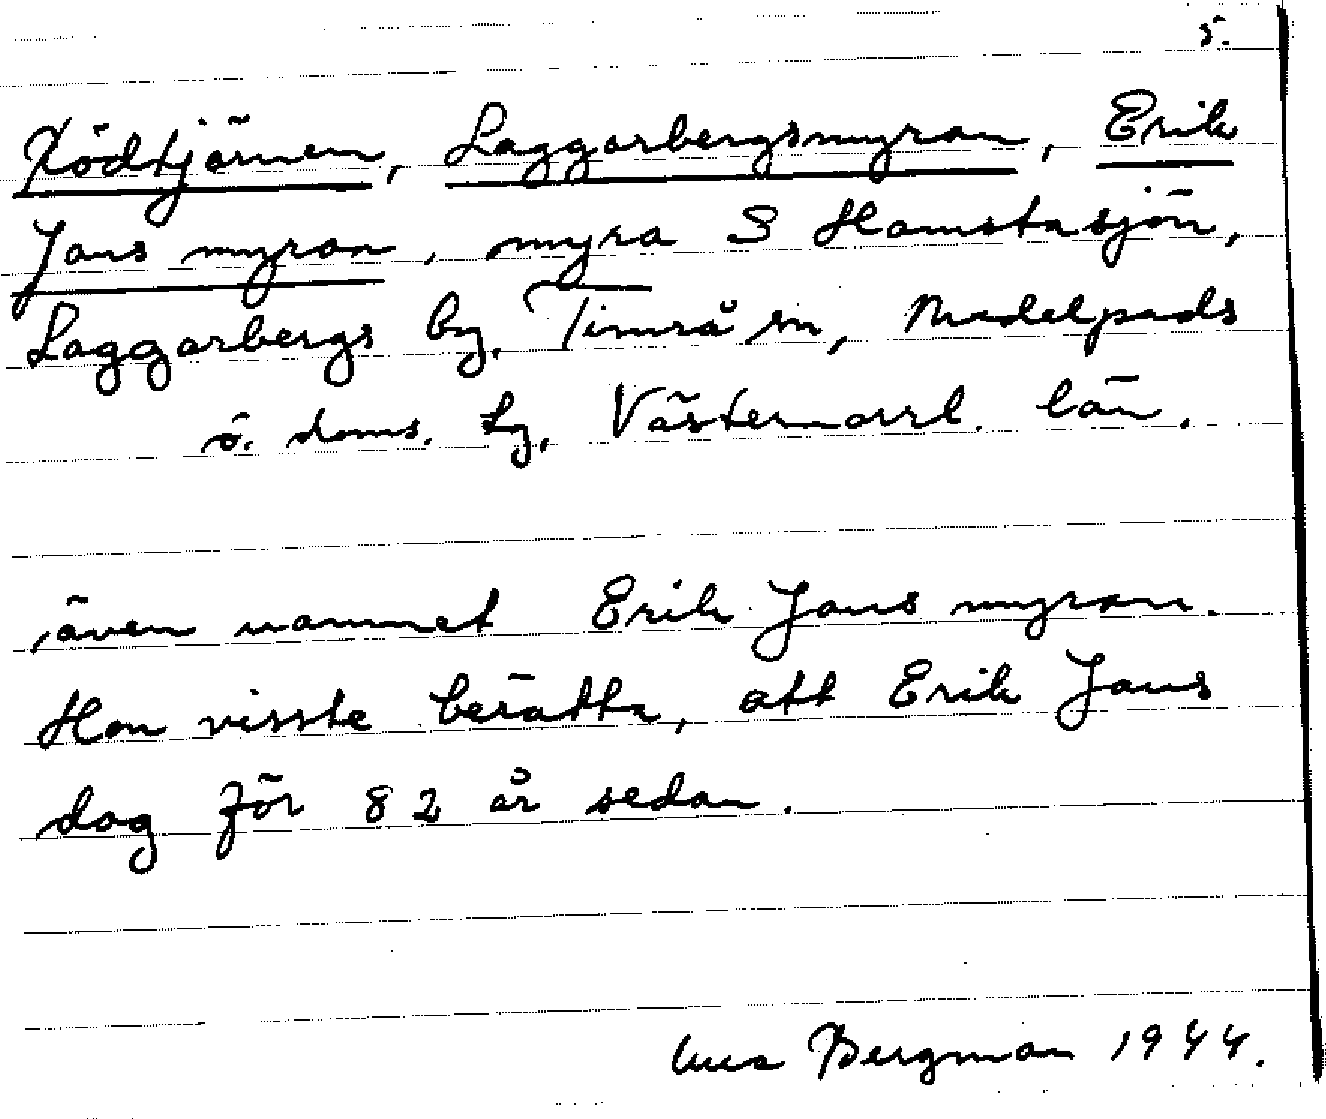 5.
Rödtjärnen, Laggarbergsmyran, Erik
Jans myran, myra S Hamstasjön,
Laggarbergs by, Timrå sn, Medelpads
ö. doms. hg, Västernorrl. län.
även namnet Erik Jans myran.
Hon visste berätta, att Erik Jans
dog för 82 år sedan.
Bergman 1944.